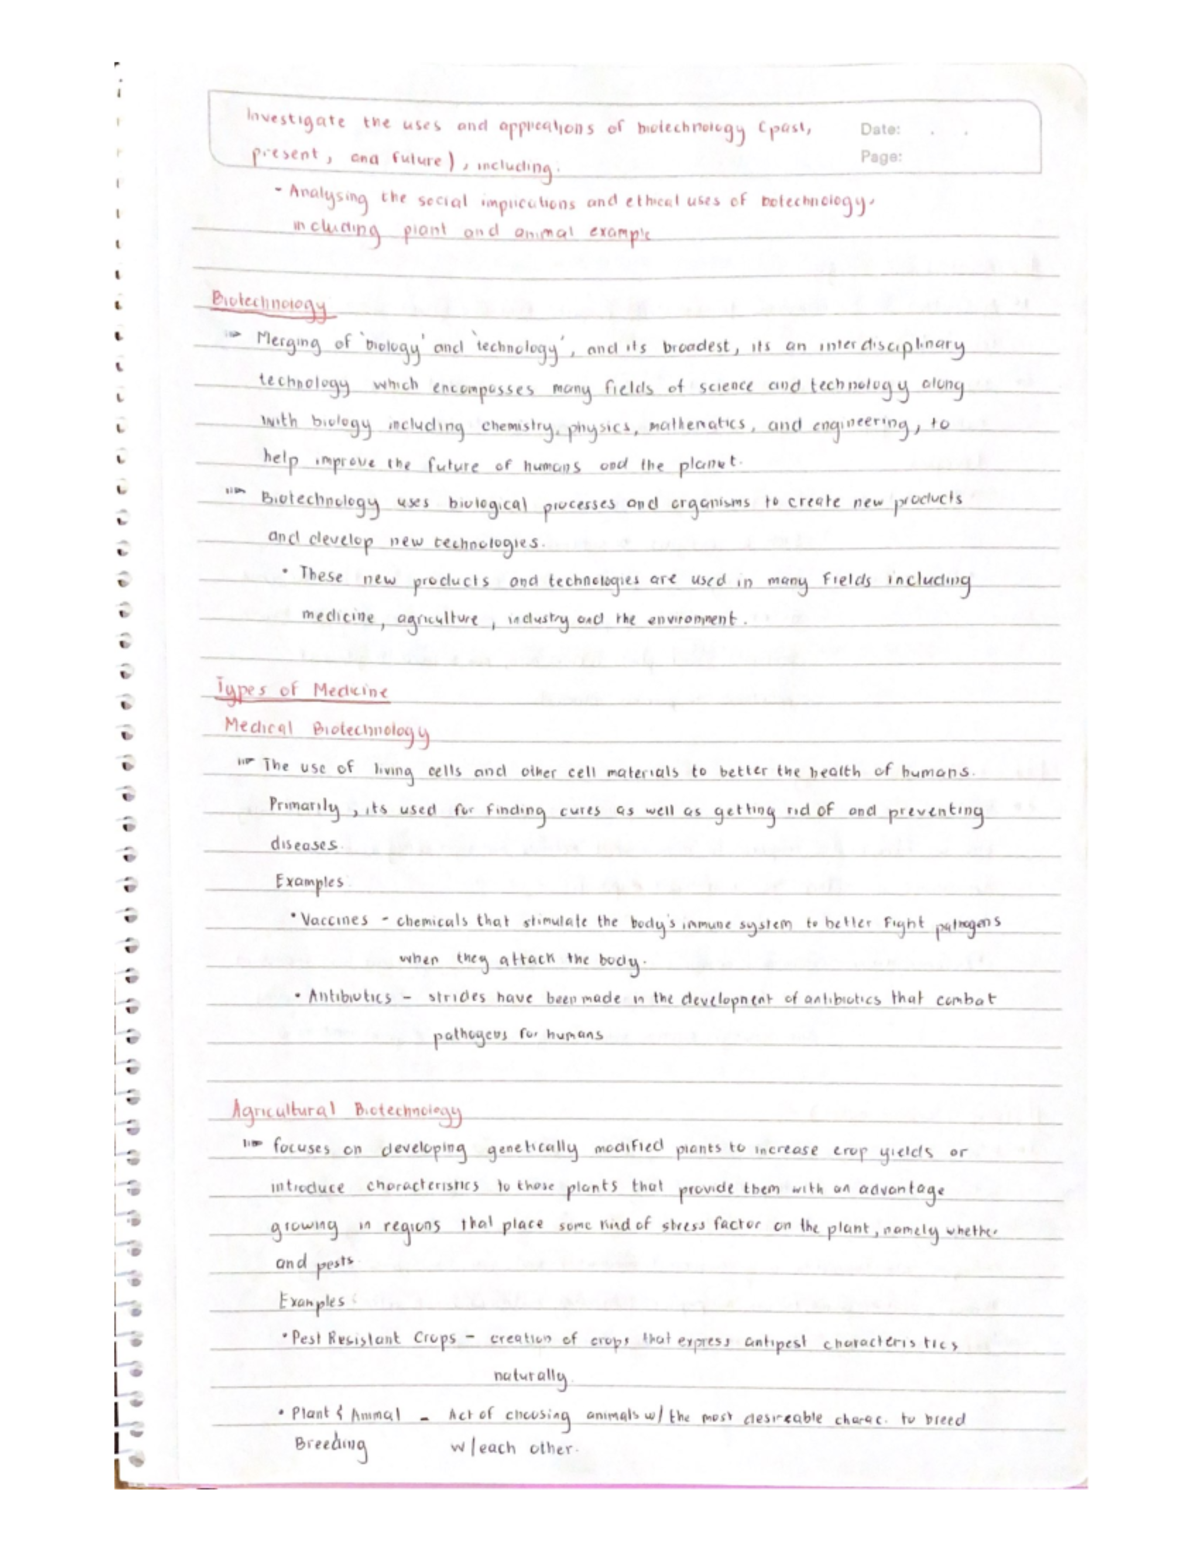 Investigate the uses and appications of biotechnology (past,
Date: . .
present, and future), including.
Page:
- Analysing the social implications and ethical uses of botechnology,
including plant and animal example
Biotechnology
Merging of 'biology' and 'technology', and its broadest, its an interdisciplinary
technology which encompasses many fields of science and technology along
with biology including chemistry, physics, mathematics, and engineering, to
help improve the future of humans and the planet.
Biotechnology uses biological processes and organisms to create new products
and develop new technologies.
• These new products and technologies are used in many fields including
medicine, agriculture, industry and the environment.
Types of Medicine
Medical Biotechnology
The use of living cells and other cell materials to better the health of humans.
Primarily, its used for finding cures as well as getting rid of and preventing
diseases.
Examples
• Vaccines - chemicals that stimulate the body's immune system to better fight pathogens
when they attack the body.
• Antibiotics - strides have been made in the development of antibiotics that combat
pathogens for humans
Agricultural Biotechnology
focuses on developing genetically modified plants to increase crop yields or
introduce characteristics to those plants that provide them with an advantage
growing in regions that place some kind of stress factor on the plant, namely whether
and pests
Examples:
• Pest Resistant Crops - creation of crops that express antipest characteristics
naturally.
• Plant & Animal - Act of choosing animals w/ the most desireable charac. to breed
Breeding w/ each other.